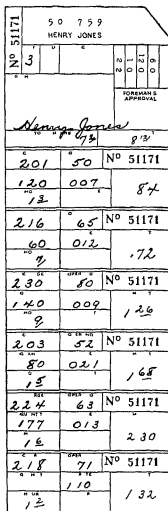 50 759
HENRY JONES
Nº 51171
3
FOREMANS
APPROVAL
Henry Jones
201 50 Nº 51171
120 007 84
13
216 65 Nº 51171
60 012 .72
230 80 Nº 51171
140 009 1 26
9
203 52 Nº 51171
80 021 1 68
15
224 63 Nº 51171
177 013 2 30
16
218 71 Nº 51171
110 1 32
12